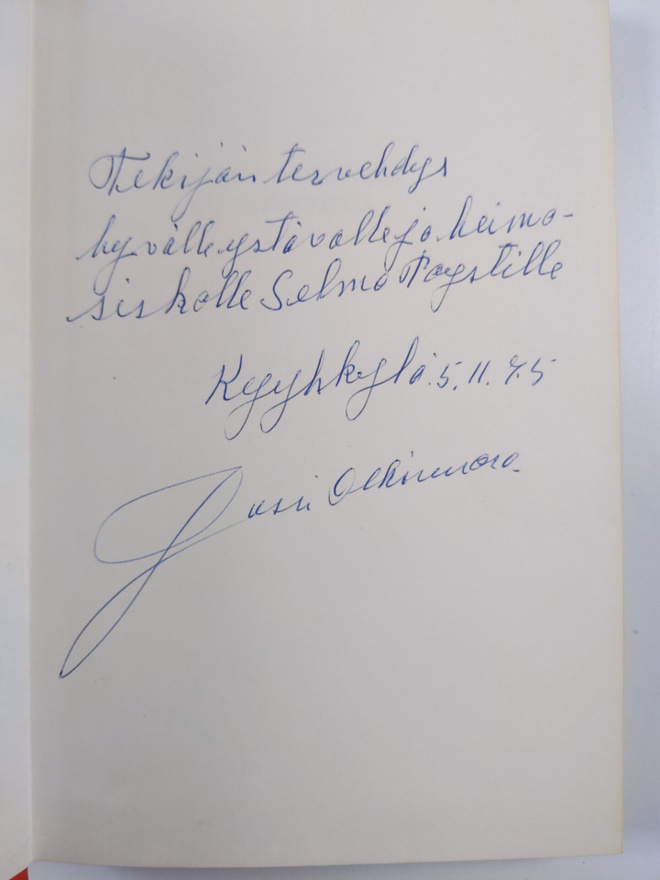 Tekijän tervehdys
hyvälle ystävälle ja heimo-
siskolle Selma Paystille
Kyyhkylä 5.11.75
Jussi Olkinuora